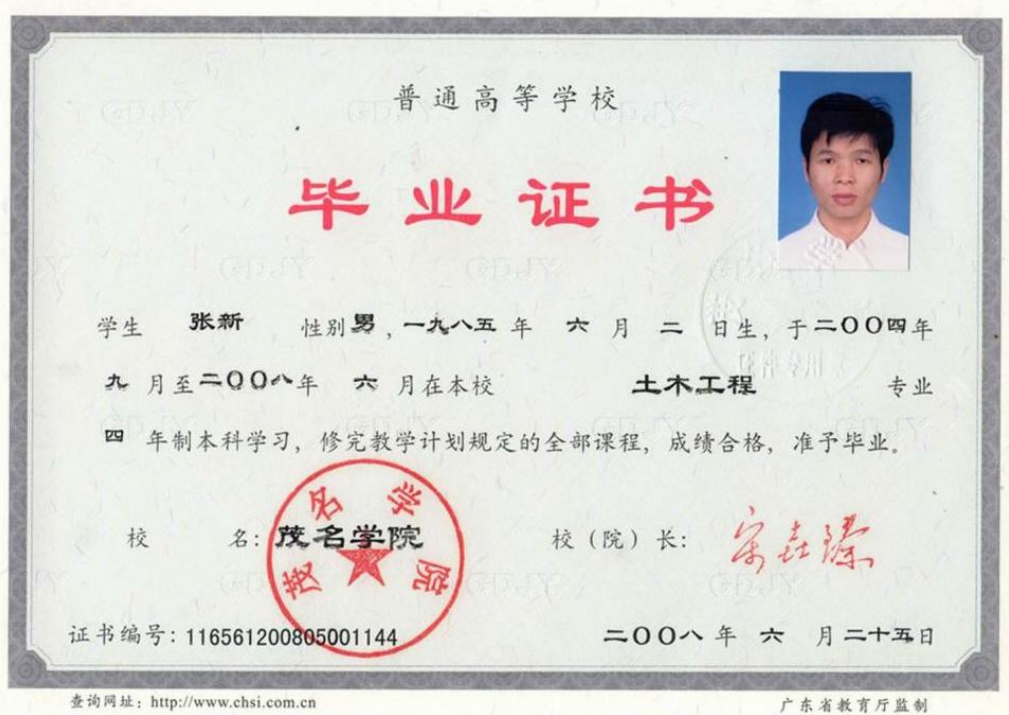 普通高等学校
毕业证书
学生 张新 性别男，一九八五年 六 月 二 日生，于二〇〇四年
九 月至二〇〇八年 六 月在本校 土木工程 专业
四 年制本科学习，修完教学计划规定的全部课程，成绩合格，准予毕业。
校 名：茂名学院 校（院）长：
茂名学院
证书编号：116561200805001144 二〇〇八年 六 月二十五日
查询网址：http://www.chsi.com.cn 广东省教育厅监制